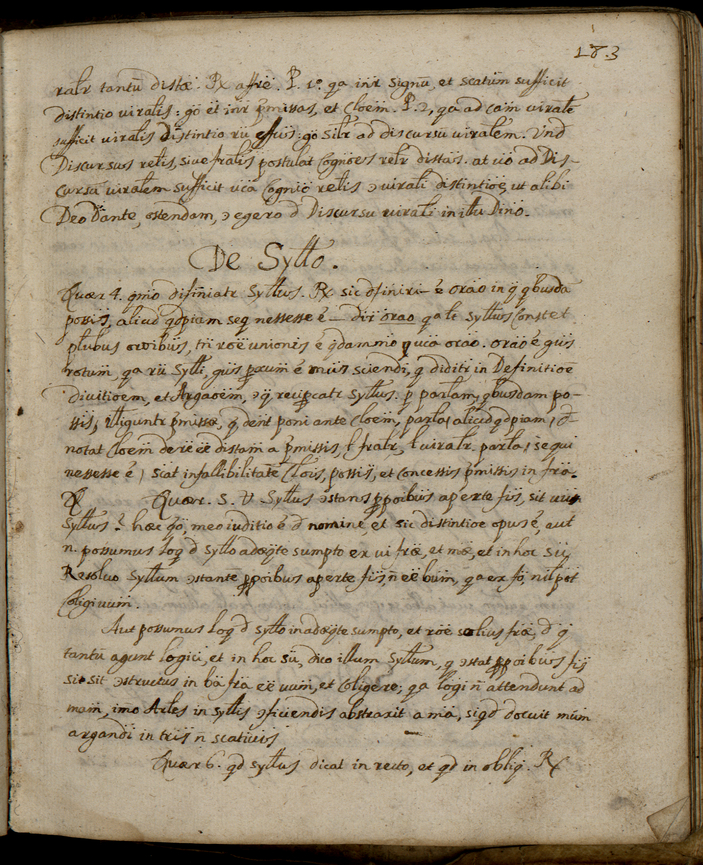 183
ralr tantũ distae. Rx affe. P. 1o. qa inr signũ, et scatum sufficit
distinctio viralis: go et inr pmissas, et Cloem. P. 2, qa ad cam virale
sufficit viralis distinctio rũ effuis: go silr ad discursũ viralem. Und
Discursus relis, sive fralis postulat Cognoes relr distais. at vo ad Dis-
cursũ viralem sufficit uca Cognio relis virali distinctioe, ut alibi
Deo Dante, ostendam, egero d Discursu virali in itu Dino.
De Syllo.
Quaer 4. qmo difiniatr Syllus. Rx sic difiniri e orao in q qbusda
possis, aliud qdpiam seq nessesse e dir orao qa lt Syllus Constet
plubus oroibus, tn roe unionis e qdammo uca orao. orao e guis
totum qa rũ Sylli, guis pcum e muis sciendi, q diditr in Definitioe
divitioem, et Argaoem, q recipcatr Syllus. p parlam, qbusdam po-
ssis, itliguntr pmissae, q dent poni ante Cloem, parla, aliud qdpiam, d-
notat Cloem dere ee distam a pmissis l fralr, l viralr. parla, sequi
nessesse e, siat infallibilitate Clois, possis, et Concessis pmissis in fra.
Quaer. 5. V Syllus stans ppoibus aperte fis, sit uus
Syllus? haec qo, meo iuditio e d nomine, et sic distinctioe opus e, aut
n. possumus loq d syllo adaeqte sumpto ex vi frae, et mae, et in hoc su,
Resolvo Syllum stante ppoibus aperte fis, n ee bum, qa ex fo, nil pot
Coligi uum.
Aut possumus loq d syllo inadaeqte sumpto, et roe solius frae, d q
tantũ agunt logici, et in hoc su, dico illum Syllum, q stat ppoibus fis
si sit structus in ba fra ee uum, et Coligere; qa logi n attendunt ad
mam, imo Arles in syllis ficiendis abstraxit a ma, siqd docuit mum
argandi in tris n scativis
Quaer 6. qd syllus dicat in recto, et qd in obliq. Rx